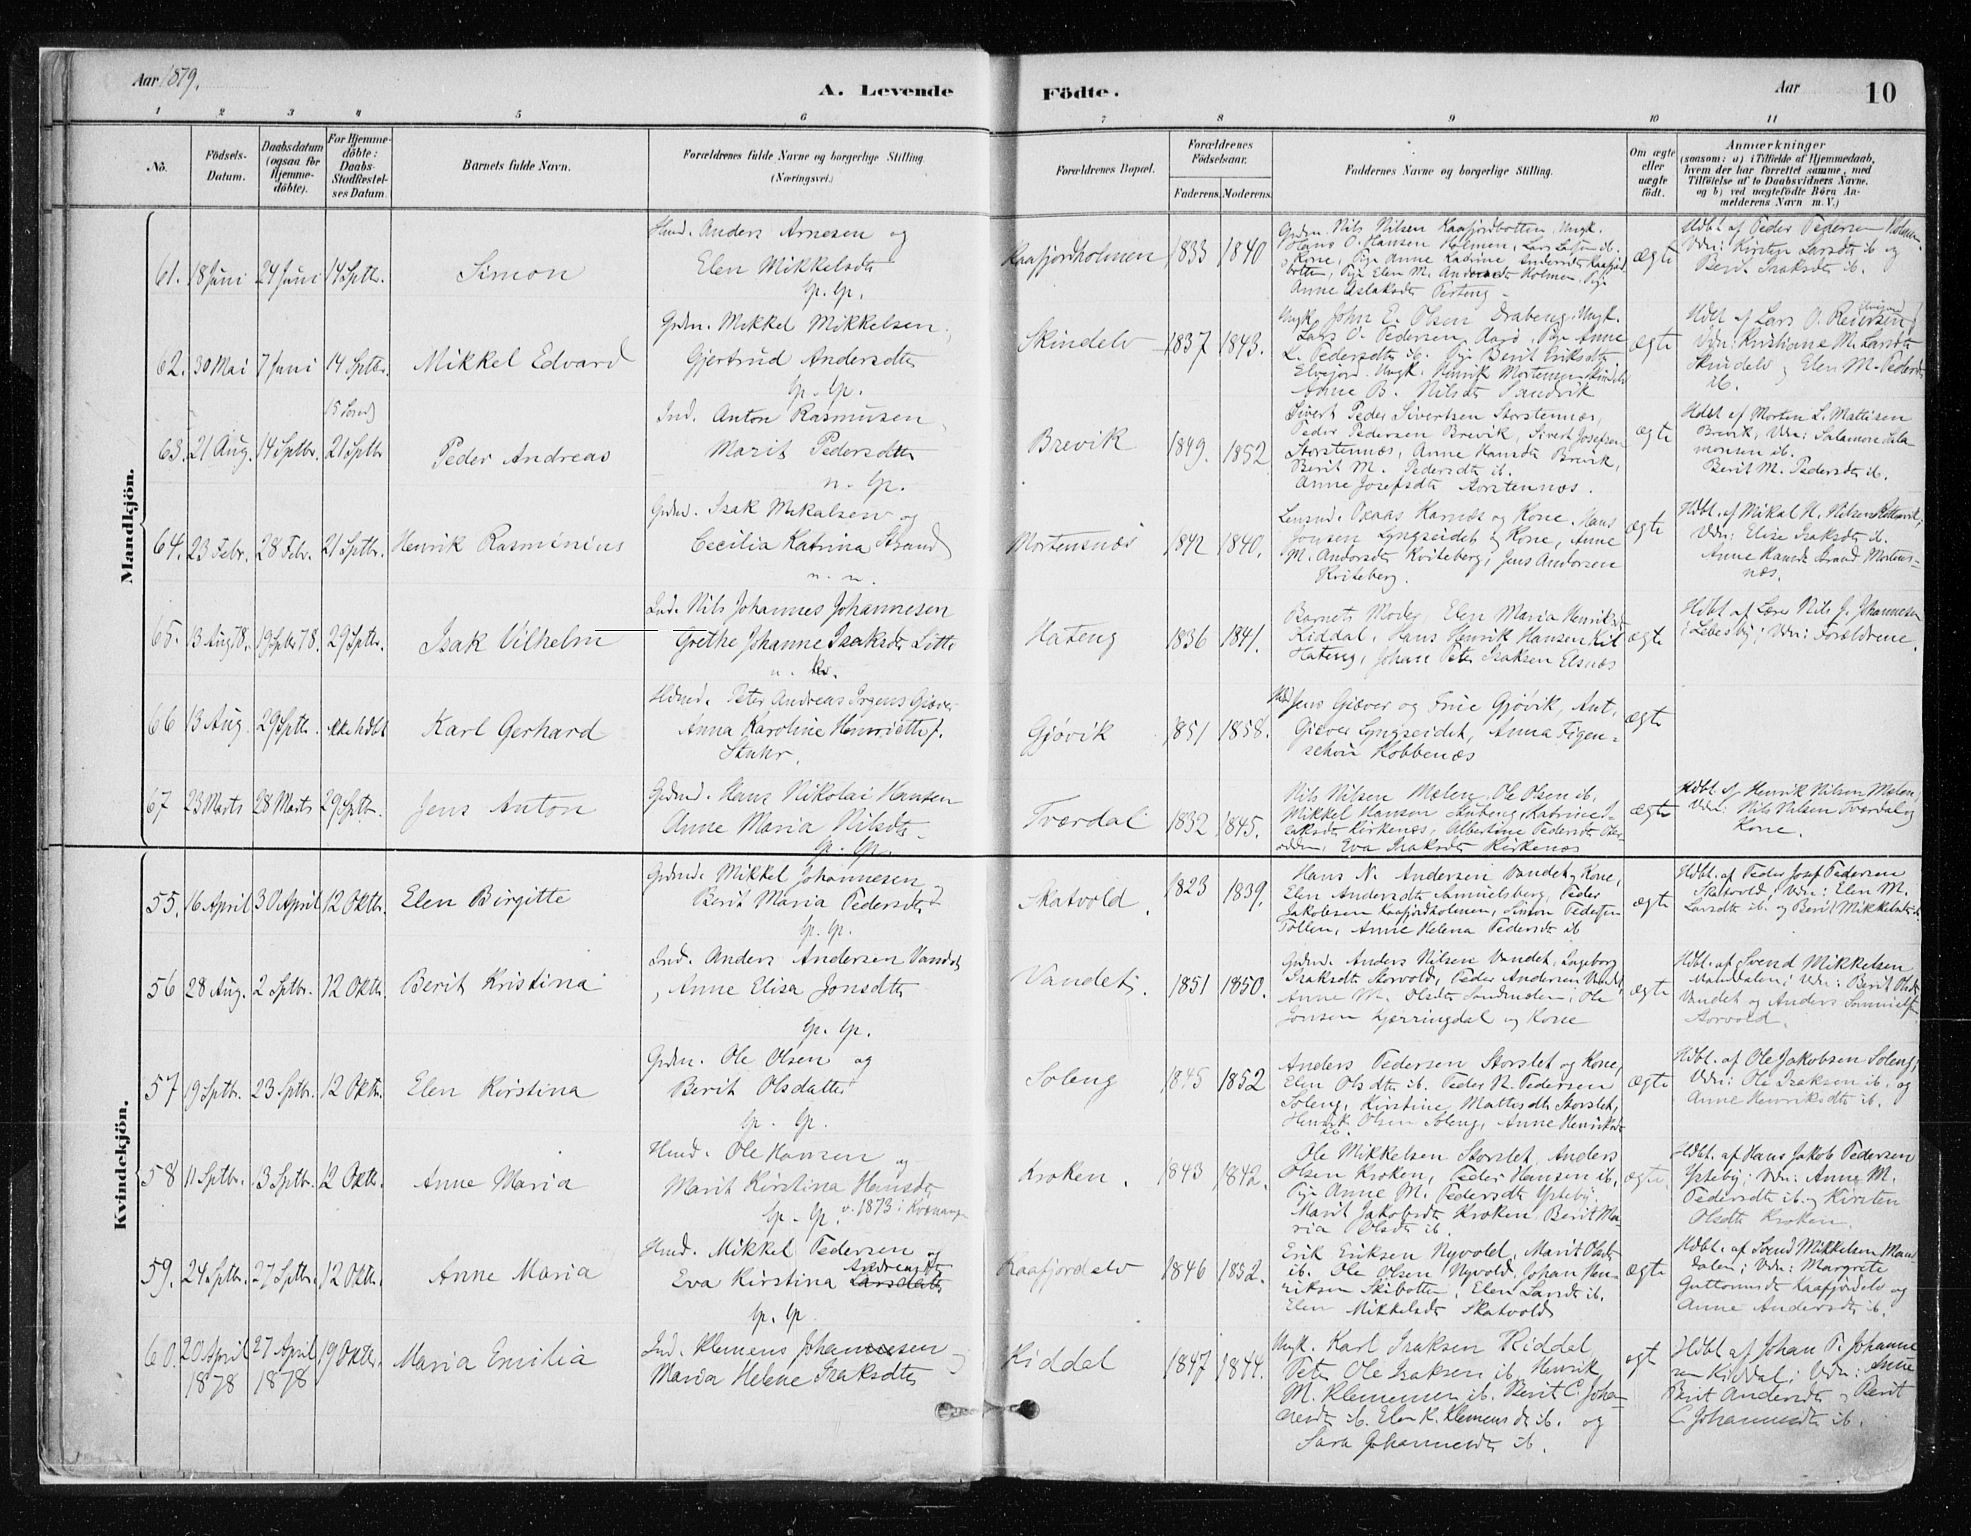 Aar 1879.
A. Levende Födte.
Aar
10
1 2 3 4 5 6 7 8 9 10 11
No.
Födsels-Datum.
Daabsdatum (ogsaa for Hjemme-döbte).
For Hjemme-döbte: Daabs-Stadfæstel-ses Datum.
Barnets fulde Navn.
Forældrenes fulde Navne og borgerlige Stilling.
(Næringsvei.)
Forældrenes Bopæl.
Forældrenes Födselsaar.
Faderens. Moderens.
Faddernes Navne og borgerlige Stilling.
Om ægte eller uægte födt.
Anmærkninger
(saasom: a) i Tilfælde af Hjemmedaab,
hvem der har forrettet samme, med
Tilföielse af to Daabsvidners Navne,
og b) ved uægtefödte Börn An-
melderens Navn m. V.)
Mandkjön.
61. 18 Juni 24 Juni 14 Sptbr. Simon
Hmd. Anders Arnesen og
Elen Mikkelsdtr
Gp. Gp.
Kaafjordholmen 1833 1840
Grdm. Nils Nilsen Kaafjordbotten, Ungk.
Hans O. Hansen Holmen, Lars Larsen ib.
o Kone, Pige Anne Katrine Andersdtr Kaafjord
botten, Pige Elen M. Andersdtr Holmen, Pige
Anne Aslaksdtr
ægte
Hdbt af Peder Pedersen Holmen
Vdn: Kirsten Larsdtr ib og
Berit Isaksdtr ib.
62. 30 Mai 7 Juni 14 Sptbr. Mikkel Edvard
Grdm. Mikkel Mikkelsen,
Gjertrud Andersdtr
Gp. Gp.
Skindelv 1837 1843.
Ungk. John E. Olsen Drabeng, Ungk.
Lars O. Pedersen Aarö, Pige Anne
L. Pedersdtr ib. Pige Berit Eriksdtr
Elvejord. Ungk. Henrik Mortensen Skindelv
Anne B. Nilsdtr Sandvik
ægte
Hdbt af Lars O. Reiersen
Vdn: Kristiane M. Larsdtr
Skindelv og Elen M. Pedersdtr
ib.
63. 21 Aug. 14 Sptbr. 21 Sptbr Peder Andreas
Ind. Anton Rasmusen,
Marit Pedersdtr
n. Gp.
Brevik 1849. 1852
Sivert Peder Sivertsen Storstennæs,
Peder Pedersen Brevik, Sivert Josefsen
Storstennæs, Anne Hansdtr Brevik,
Berit M. Pedersdtr ib.
Anne Josefsdtr Storstennæs.
ægte
Hdbt af Morten L. Mattisen
Brevik, Vdn: Salamon Sala-
monsen ib.
Berit M. Pedersdtr ib.
64. 23 Febr. 28 Febr. 21 Sptbr. Henrik Rasminius
Grdmd. Isak Mikalsen og
Cecilia Katrina Strand
n. n.
Mortensnæs 1842 1840.
Lensmd. Oxaas Karnæs og Kone, Hans
Jonsen Lyngseidet og Kone, Anne
M. Andersdtr Kviteberg, Jens Andersen
Kviteberg.
ægte
Hdbt. af Mikal N. Nilsen
Vdn: Elise Isaksdtr ib.
Anne Hansdtr Strand Mortens-
næs.
65. 13 Aug 78. 19 Sptbr 78. 29 Sptbr. Isak Vilhelm
Ind. Nils Johannes Johannesen
Grethe Johanne Isaksdtr
n. Kv.
Hateng 1836 1841.
Barnets Moder, Elen Maria Henriksdtr
Kiddal, Hans Henrik Hansen
Hateng, Johan Peter Isaksen Elsnæs
ægte
Hdbt af Lærer Nils J. Johannesen
i Lebesby; Vdn: Forældrene.
66 13 Aug 29 Sptbr. ikke hdbt Karl Gerhard
Hdmd. Peter Andreas Irgens Gjæver
Anna Karoline Henriette f.
Stuhr.
Gjövik 1851 1858.
Jens Giæver og Frue Gjövik, Ant.
Giæver Lyngseidet, Anna Figen-
schou Kobbenæs
ægte
67 23 Marts 28 Marts 29 Sptbr. Jens Anton
Grdmd. Hans Nikolai Hansen
Anne Maria Nilsdtr.
Gp. Gp.
Tværdal 1832 1845.
Nils Nilsen Mælen, Ole Olsen ib.
Mikkel Hansen Stubeng, Katrine I-
saksdtr Kirkenæs, Albertine Pedersdtr
Eva Isaksdtr Kirkenæs
ægte
Hdbt. af Henrik Nilsen Mælen;
Vdn: Nils Nilsen Tværdal og
Kone.
Kvindekjön.
55. 16 April 30 April 12 Oktbr. Elen Birgitte
Grdmd. Mikkel Johannesen
Berit Maria Pedersdtr
Gp. Gp.
Skatvold. 1823 1839.
Hans N. Andersen Vandet og Kone,
Elen Andersdtr Samuelsberg, Peder
Jakobsen Kaafjordholmen, Simon Pedersen
Tollen, Anne Helena Pedersdtr ib
ægte
Hdbt. af Peder Josef Pedersen
Skatvold; Vdn: Elen M.
Larsdtr ib. og Berit Mikkelsdtr ib.
56 28 Aug. 2 Sptbr. 12 Oktbr. Berit Kristina
Ind. Anders Andersen Vandet
, Anne Elisa Jonsdtr
Gp. Gp.
Vandet. 1851 1850.
Grdmd. Anders Nilsen Vandet, Ingeborg
Isaksdtr Storvold, Peder Andersen Vandet,
Anne M. Olsdtr Sandmælen, Ole
Jonsen Kjerringdal og Kone
ægte
Hdbt. af Svend Mikkelsen
Mandalen; Vdn: Berit Olsdtr
Vandet og Anders Samuelsen
Storvold.
57 19 Sptbr. 23 Sptbr. 12 Oktbr. Elen Kirstina
Grdm. Ole Olsen og
Berit Olsdatter
Gp. Gp.
Soleng 1845 1852
Anders Pedersen Storslet og Kone,
Elen Olsdtr ib. Peder N. Pedersen
Soleng, Kirstine Mattisdtr Storslet,
Henrik Olsen Soleng, Anne Henriksdtr
ib.
ægte
Hdbt. af Ole Jakobsen Soleng;
Vdn: Ole Isaksen ib. og
Anne Henriksdtr ib.
58 11 Sptbr. 13 Sptbr. 12 Oktbr. Anne Maria
Hmd. Ole Hansen og
Marit Kirstina Hansdtr
v. 1873 i Kvænangen
Gp. Gp.
Kroken. 1843 1842.
Ole Mikkelsen Storslet, Anders
Olsen Kroken, Peder Hansen ib.
Pige Anne M. Pedersdtr Ysteby,
Marit Jakobsdtr Kroken, Berit Ma-
ria Olsdtr ib
ægte
Hdbt. af Hans Jakob Pedersen
Ysteby; Vdn: Anne M.
Pedersdtr ib. og Kirsten
Olsdtr Kroken.
59. 24 Sptbr. 27 Sptbr. 12 Oktbr. Anne Maria
Hmd. Mikkel Pedersen og
Eva Kirstina Larsdatter Andreasdtr
Gp. Gp.
Kaafjordelv 1846 1852.
Erik Eriksen Nyvold, Marit Olsdtr
ib. Ole Olsen Nyvold, Johan Hen-
riksen Skibotten, Elen Larsdtr ib.
Elen Mikkelsdtr Skatvold
ægte
Hdbt. af Svend Mikkelsen Man-
dalen; Vdn: Margrete
Guttormsdtr Kaafjordelv og
Anne Andersdtr ib.
60. 20 April 1878 27 April 1878 19 Oktbr. Maria Emilia
Ind. Klemens Johannesen og
Maria Helene Isaksdtr
Kiddal 1847 1844.
Ungk. Karl Isaksen Kiddal
Peter Ole Isaksen ib. Henrik
M. Klemensen ib. Berit C. Joha-
nesdtr ib. Elen K. Klemensdtr ib. og
Sara Johannesdtr ib.
egt
Hdbt af Johan P. Johanne
sen Kiddal; Vdn: Anne
Berit Andersdtr og Berit
C. Johannesdtr ib.